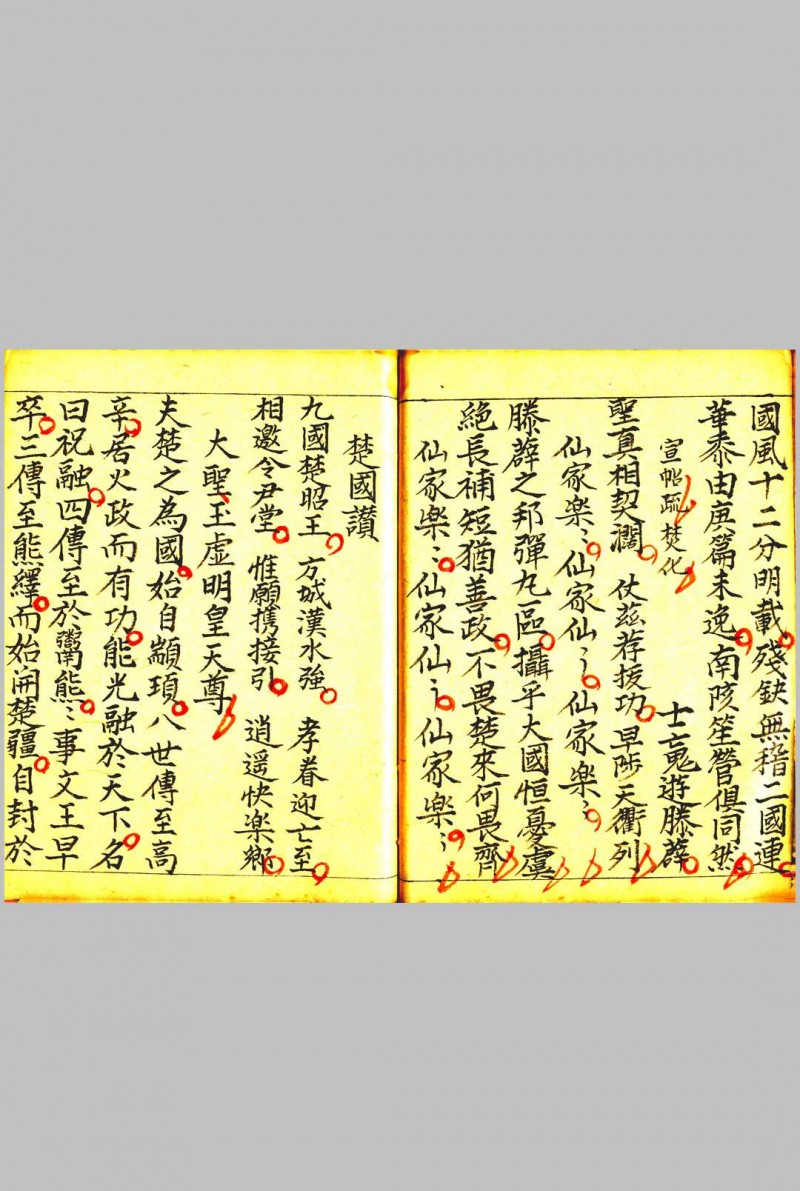 國風十二分明載殘缺無稽二國連
華泰由庚篇未逸南陔笙管俱同然
宣帖疏焚化　士亡䰟遊滕薛
聖真相契濶　仗茲荐拔功早陟天衢列
仙家樂〻仙家仙〻仙家樂〻
滕薛之邦彈丸區攝乎大國恒憂虞
絶長補短猶善政不畏楚來何畏齊
仙家樂〻仙家仙〻仙家樂〻
楚國讃
九國楚昭王　方城漢水強　孝眷迎亡至
相邀令尹堂　惟願携接引　逍遥快楽鄉
大聖玉虚明皇天尊
夫楚之為國始自顓頊八世傳至高
辛居火政而有功能光融於天下名
曰祝融四傳至於鬻熊〻事文王早
卒三傳至熊繹而始開楚疆自封於